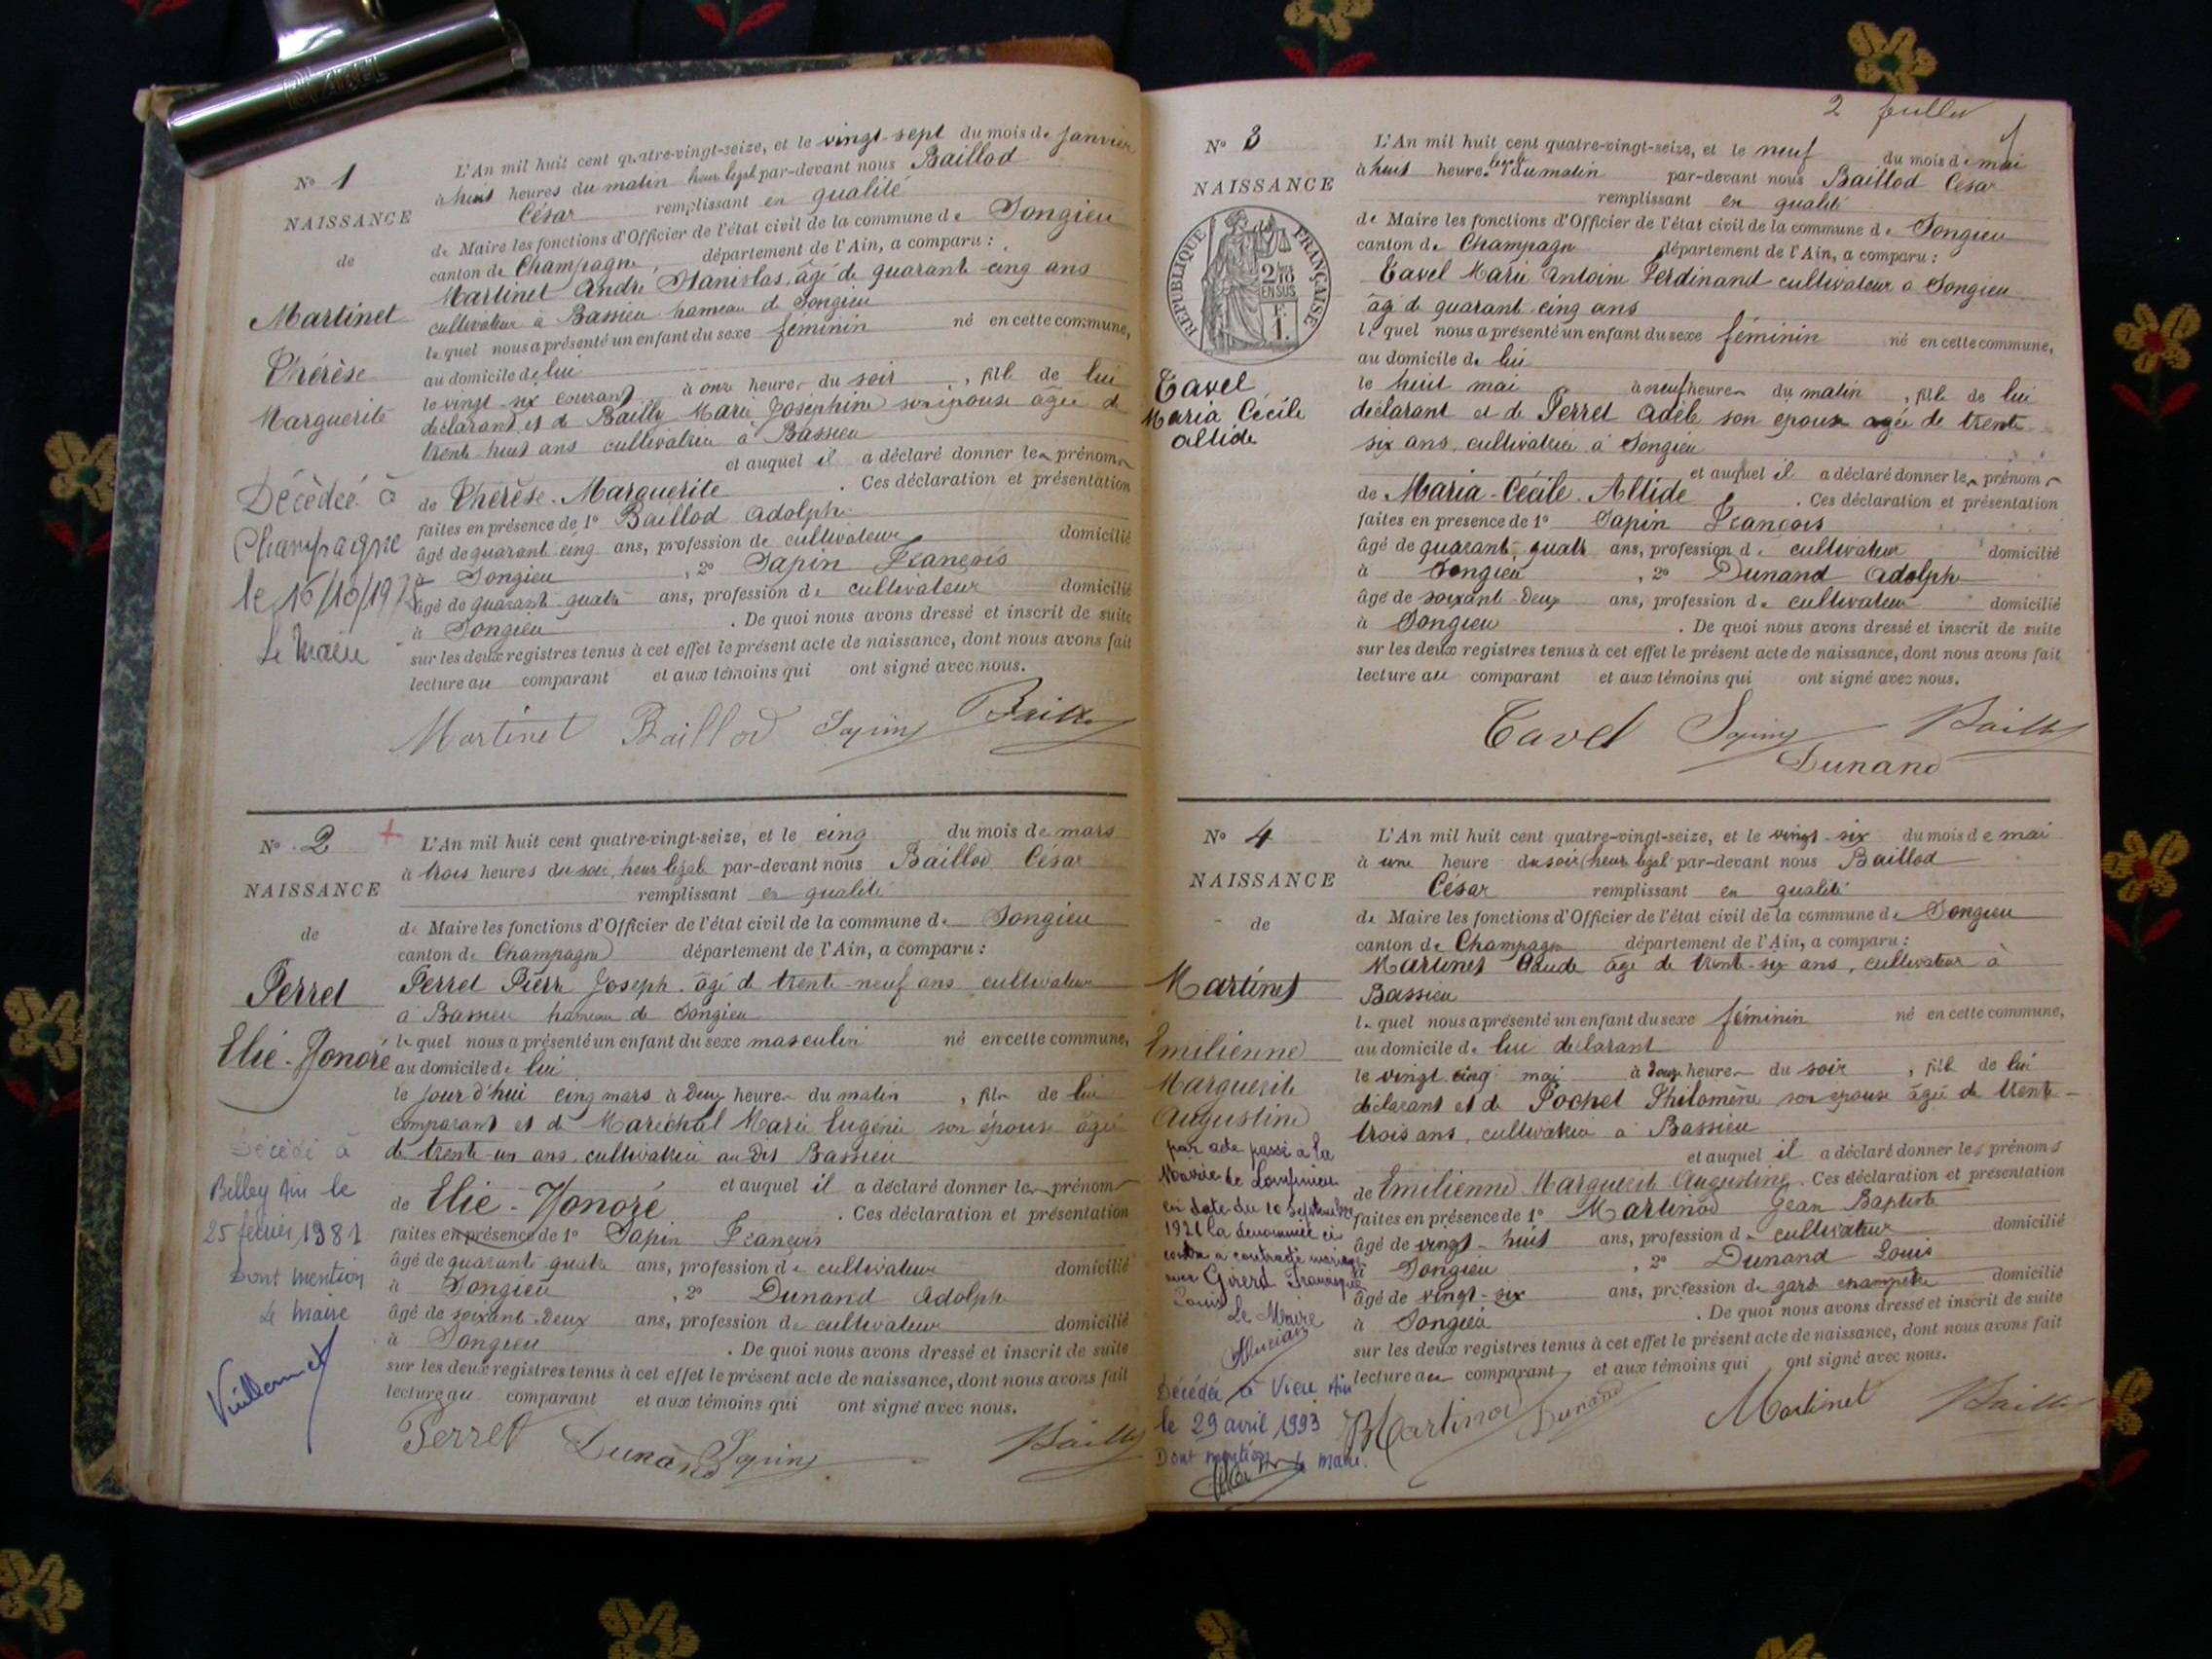 N° 1
NAISSANCE
de
Martinet
Thérèse
Marguerite
Décédée à
Champagne
le 16/10/1975
Le Maire
L'An mil huit cent quatre-vingt-seize, et le vingt-sept du mois de janvier
à huit heures du matin heure légale par-devant nous Baillod
César remplissant en qualité
de Maire les fonctions d'Officier de l'état civil de la commune de Songieu
canton de Champagne, département de l'Ain, a comparu :
Martinet André Stanislas, âgé de quarante-cinq ans
cultivateur à Bassieu hameau de Songieu
lequel nous a présenté un enfant du sexe féminin né en cette commune,
au domicile de lui
le vingt-six courant à onze heures du soir, fille de lui
déclarant et de Bailly Marie Joséphine son épouse âgée de
trente-huit ans cultivatrice à Bassieu
et auquel il a déclaré donner les prénoms
de Thérèse-Marguerite. Ces déclaration et présentation
faites en présence de 1° Baillod Adolphe
âgé de quarante cinq ans, profession de cultivateur domicilié
à Songieu, 2° Sapin François
âgé de quarante-quatre ans, profession de cultivateur domicilié
à Songieu. De quoi nous avons dressé et inscrit de suite
sur les deux registres tenus à cet effet le présent acte de naissance, dont nous avons fait
lecture au comparant et aux témoins qui ont signé avec nous.
Martinet Baillod Sapin Baillod
N° 2
NAISSANCE
de
Perret
Elie-Honoré
Décédé à
Belley Ain le
25 février 1981
Dont mention
Le maire
L'An mil huit cent quatre-vingt-seize, et le cinq du mois de mars
à trois heures du soir, heure légale par-devant nous Baillod César
remplissant en qualité
de Maire les fonctions d'Officier de l'état civil de la commune de Songieu
canton de Champagne département de l'Ain, a comparu :
Perret Pierre Joseph. âgé de trente-neuf ans cultivateur
à Bassieu hameau de Songieu
lequel nous a présenté un enfant du sexe masculin né en cette commune,
au domicile de lui
le jour d'hui cinq mars à deux heures du matin, fils de lui
comparant et de Maréchal Marie Eugénie son épouse âgée
de trente-un ans, cultivatrice au dit Bassieu
et auquel il a déclaré donner les prénoms
de Elie-Honoré. Ces déclaration et présentation
faites en présence de 1° Sapin François
âgé de quarante quatre ans, profession de cultivateur domicilié
à Songieu, 2° Dunand Adolphe
âgé de soixante-deux ans, profession de cultivateur domicilié
à Songieu. De quoi nous avons dressé et inscrit de suite
sur les deux registres tenus à cet effet le présent acte de naissance, dont nous avons fait
lecture au comparant et aux témoins qui ont signé avec nous.
Perret Dunand Sapin Baillod
N° 3
NAISSANCE
RÉPUBLIQUE FRANÇAISE
2/10
EN SUS
F.
1.
Tavel
Maria Cécile
Altide
L'An mil huit cent quatre-vingt-seize, et le neuf du mois de mai
à huit heures légale du matin par-devant nous Baillod César
remplissant en qualité
de Maire les fonctions d'Officier de l'état civil de la commune de Songieu
canton de Champagne département de l'Ain, a comparu :
Tavel Marie Antoine Ferdinand cultivateur à Songieu
âgé de quarante-cinq ans
lequel nous a présenté un enfant du sexe féminin né en cette commune,
au domicile de lui
le huit mai à neuf heures du matin, fille de lui
déclarant et de Perret Adèle son épouse agée de trente
six ans, cultivatrice à Songieu
et auquel il a déclaré donner les prénoms
de Maria-Cécile-Altide. Ces déclaration et présentation
faites en présence de 1° Sapin François
âgé de quarante quatre ans, profession de cultivateur domicilié
à Songieu, 2° Dunand Adolphe
âgé de soixante-deux ans, profession de cultivateur domicilié
à Songieu. De quoi nous avons dressé et inscrit de suite
sur les deux registres tenus à cet effet le présent acte de naissance, dont nous avons fait
lecture au comparant et aux témoins qui ont signé avec nous.
Tavel Sapin Baillod
Dunand
N° 4
NAISSANCE
de
Martinet
Emilienne
Marguerite
Augustine
par acte passé à la
Mairie de
en date du 10 septembre
1921 la dénommée ci
contre a contracté mariage
avec Girerd François
Louis
Le Maire
Décédée à Vieu Ain
le 29 avril 1993
Dont mention le maire.
L'An mil huit cent quatre-vingt-seize, et le vingt-six du mois de mai
à une heure du soir (heure légale par-devant nous Baillod
César remplissant en qualité
de Maire les fonctions d'Officier de l'état civil de la commune de Songieu
canton de Champagne département de l'Ain, a comparu :
Martinet Claude âgé de trente-six ans, cultivateur à
Bassieu
lequel nous a présenté un enfant du sexe féminin né en cette commune,
au domicile de lui déclarant
le vingt cinq mai à deux heures du soir, fille de lui
déclarant et de Pochet Philomène son épouse âgée de trente-
trois ans, cultivatrice à Bassieu
et auquel il a déclaré donner les prénoms
de Emilienne Marguerite Augustine. Ces déclaration et présentation
faites en présence de 1° Martinod Jean Baptiste
âgé de vingt-huit ans, profession de cultivateur domicilié
à Songieu, 2° Dunand Louis
âgé de vingt-six ans, profession de garde champêtre domicilié
à Songieu. De quoi nous avons dressé et inscrit de suite
sur les deux registres tenus à cet effet le présent acte de naissance, dont nous avons fait
lecture au comparant et aux témoins qui ont signé avec nous.
Martinod Dunand Martinet Baillod